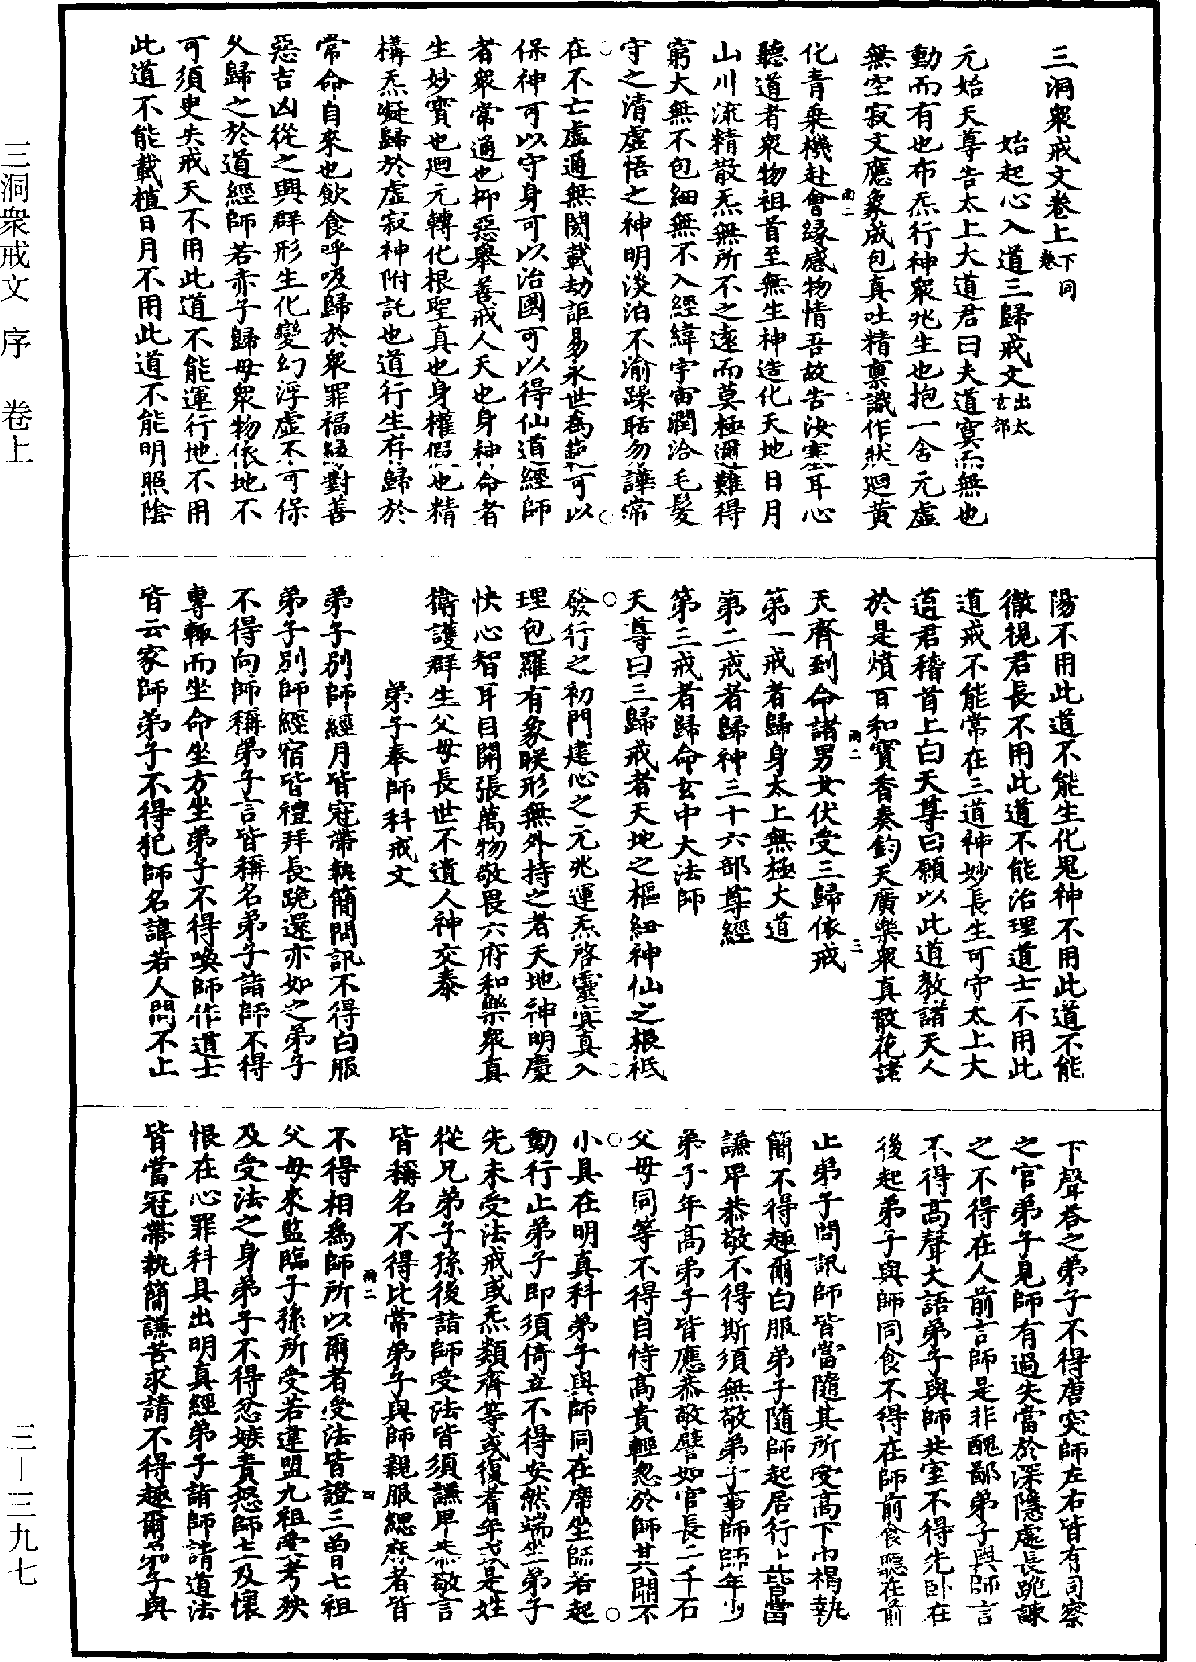 三洞衆戒文卷上 下卷同
始起心入道三歸戒文 出太玄部
元始天尊告太上大道君曰夫道寞而無也
動而有也布炁行神衆兆生也抱一含元虛
無空寂文應象成包真吐精稟識作狀廻黄
化青乗機赴會緣感物情吾故告汝塞耳心
聽道者衆物祖首至無生神造化天地日月
山川流精散炁無所不之遠而莫極邇難得
窮大無不包細無不入經緯宇宙潤洽毛髮
守之清虛悟之神明淡泊不渝躁聒勿譁常
在不亡虛通無閡載劫詎易永世為範可以
保神可以守身可以治國可以得仙道經師
者衆常通也抑惡舉善戒人天也身神命者
生妙寳也廻元轉化根聖真也身權假也精
構炁凝歸於虛寂神附託也道行生存歸於
常命自来也飲食呼吸歸於衆罪福緣對善
惡吉凶從之與群形生化變幻浮虛不可保
久歸之於道經師若赤子歸母衆物依地不
可須㬰失戒天不用此道不能運行地不用
此道不能載植日月不用此道不能明照陰
陽不用此道不能生化鬼神不用此道不能
徹視君長不用此道不能治理道士不用此
道戒不能常在三道神妙長生可守太上大
道君稽首上白天尊曰願以此道教諸天人
於是燌百和寳香奏鈞天廣樂衆真散花諸
天齊到命諸男女伏受三歸依戒
第一戒者歸身太上無極大道
第二戒者歸神三十六部尊經
第三戒者歸命玄中大法師
天尊曰三歸戒者天地之樞紐神仙之根柢
發行之初門建心之元兆運炁啓靈寘真入
理包羅有象眹形無外持之者天地神明慶
快心智耳目開張萬物敬畏六府和樂衆真
衛護群生父母長世不遺人神交泰
弟子奉師科戒文
弟子别師經月皆冠帶執簡問訊不得白服
弟子别師經宿皆禮拜長跪還亦如之弟子
不得向師稱弟子言皆稱名弟子詣師不得
專輙而坐命坐方坐弟子不得喚師作道士
皆云家師弟子不得犯師名諱若人問不止
下聲荅之弟子不得唐突師左右皆有司察
之官弟子見師有過失當於深隱處長跪諫
之不得在人前言師是非醜鄙弟子與師言
不得高聲大語弟子與師共室不得先卧在
後起弟子與師同食不得在師前食聽在前
止弟子問訊師皆當隨其所受高下巾褐執
簡不得趣爾白服弟子隨師起居行止皆當
謙卑恭敬不得斯須無敬弟子事師師年少
弟子年高弟子皆應恭敬譬如官長二千石
父母同等不得自恃高貴輕忽於師其開不
小具在明真科弟子與師同在席坐師若起
動行止弟子即須倚立不得安然端坐弟子
先未受法戒或炁類齊等或復耆年或是姓
從兄弟子孫後詣師受法皆須謙卑恭敬言
皆稱名不得比常弟子與師親服緦麻者皆
不得相為師所以爾者受法皆證三曾七祖
父母來監臨子孫所受若違盟九祖受考殃
及受法之身弟子不得忿嫉責怒師主及懷
恨在心罪科具出明真經弟子詣師請道法
皆當冠帶執簡謙苦求請不得趣爾弟子與
三洞衆戒文 序 卷上
三—三九七